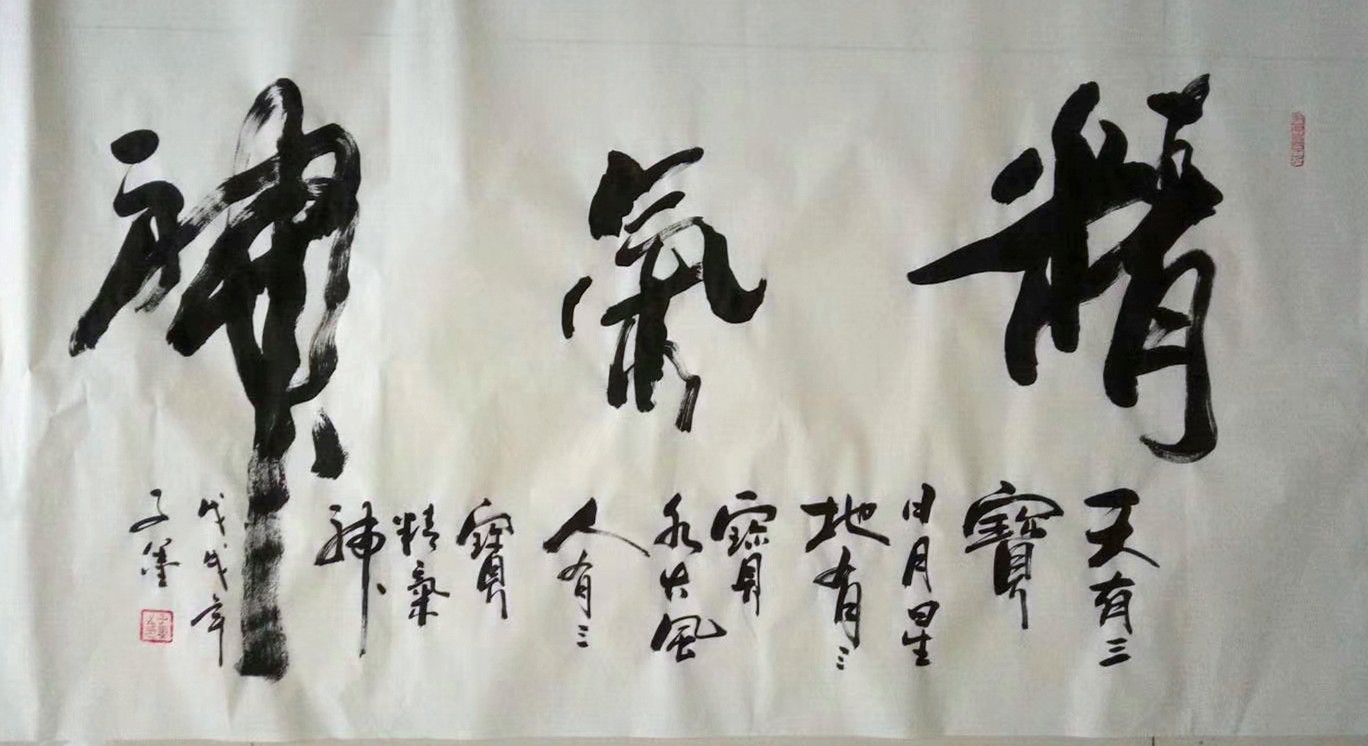 精氣神
天有三
寶
日月星
地有三
寶
水火風
人有三
寶
精氣
神
戊戌年
子墨